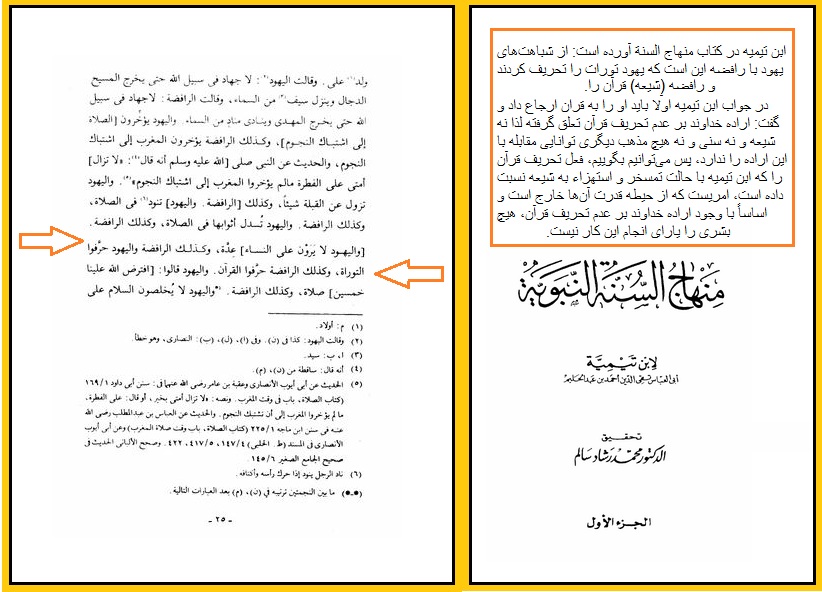 ابن تیمیه در کتاب منهاج السنة آورده است: از شباهت‌های
یهود با رافضه این است که یهود تورات را تحریف کردند
و رافضه (شیعه) قرآن را.
در جواب ابن تیمیه اولا باید او را به قرآن ارجاع داد و
گفت: اراده خداوند بر عدم تحریف قرآن تعلق گرفته لذا نه
شیعه و نه سنی و نه هیچ مذهب دیگری توانایی مقابله با
این اراده را ندارد، پس می‌توانیم بگوییم، فعل تحریف قرآن
را که ابن تیمیه با حالت تمسخر و استهزاء به شیعه نسبت
داده است، امریست که از حیطه قدرت آن‌ها خارج است و
اساساً با وجود اراده خداوند بر عدم تحریف قرآن، هیچ
بشری را یارای انجام این کار نیست.
منهاج السنة النبوية
لابن تيمية
أبي العباس تقي الدين أحمد بن عبد الحليم
تحقيق
الدكتور محمد رشاد سالم
الجزء الأول
ولد(١) على. وقالت اليهود(٢): لا جهاد فى سبيل الله حتى يخرج المسيح
الدجال وينزل سيف(٣) من السماء، وقالت الرافضة: لا جهاد فى سبيل
الله حتى يخرج المهدى وينادى مناد من السماء. واليهود يؤخرون [الصلاة
إلى اشتباك النجوم]، وكذلك الرافضة يؤخرون المغرب إلى اشتباك
النجوم، والحديث عن النبى صلى [الله عليه وسلم أنه قال(٤): «لا تزال]
أمتى على الفطرة مالم يؤخروا المغرب إلى اشتباك النجوم»(٥). واليهود
تزول عن القبلة شيئاً، وكذلك [الرافضة. واليهود] تنود(٦) فى الصلاة،
وكذلك الرافضة. واليهود تُسدل أثوابها فى الصلاة، وكذلك الرافضة.
[واليهود لا يَرَوْن على النساء] عِدَّة، وكذلك الرافضة واليهود حرَّفوا
التوراة، وكذلك الرافضة حرَّفوا القرآن. واليهود قالوا: [افترض الله علينا
خمسين] صلاة، وكذلك الرافضة. *واليهود لا يُخلصون السلام على
(١) م: أولاد.
(٢) وقالت اليهود: كذا فى (ن). وفى (ا)، (ل)، (ب): النصارى، وهو خطأ.
(٣) ا، ب: سيد.
(٤) أنه قال: ساقطة من (ن)، (م).
(٥) الحديث عن أبى أيوب الأنصارى وعقبة بن عامر رضى الله عنهما فى: سنن أبى داود ١/١٦٩
(كتاب الصلاة، باب فى وقت المغرب. ونصه: «لا تزال أمتى بخير، أو قال: على الفطرة،
ما لم يؤخروا المغرب إلى أن تشتبك النجوم. والحديث عن العباس بن عبدالمطلب رضى الله
عنه فى سنن ابن ماجه ١/٢٢٥ (كتاب الصلاة، باب وقت صلاة المغرب) وعن أبى أيوب
الأنصارى فى المسند (ط. الحلبى) ٤/١٤٧، ٥/٤١٧، ٤٢٢. وصحح الألبانى الحديث فى
صحيح الجامع الصغير ٦/١٤٥.
(٦) ناد الرجل ينود إذا حرك رأسه وأكتافه.
(*-*) ما بين النجمتين ترتيبه فى (ن)، (م) بعد العبارات التالية.
- ٢٥ -